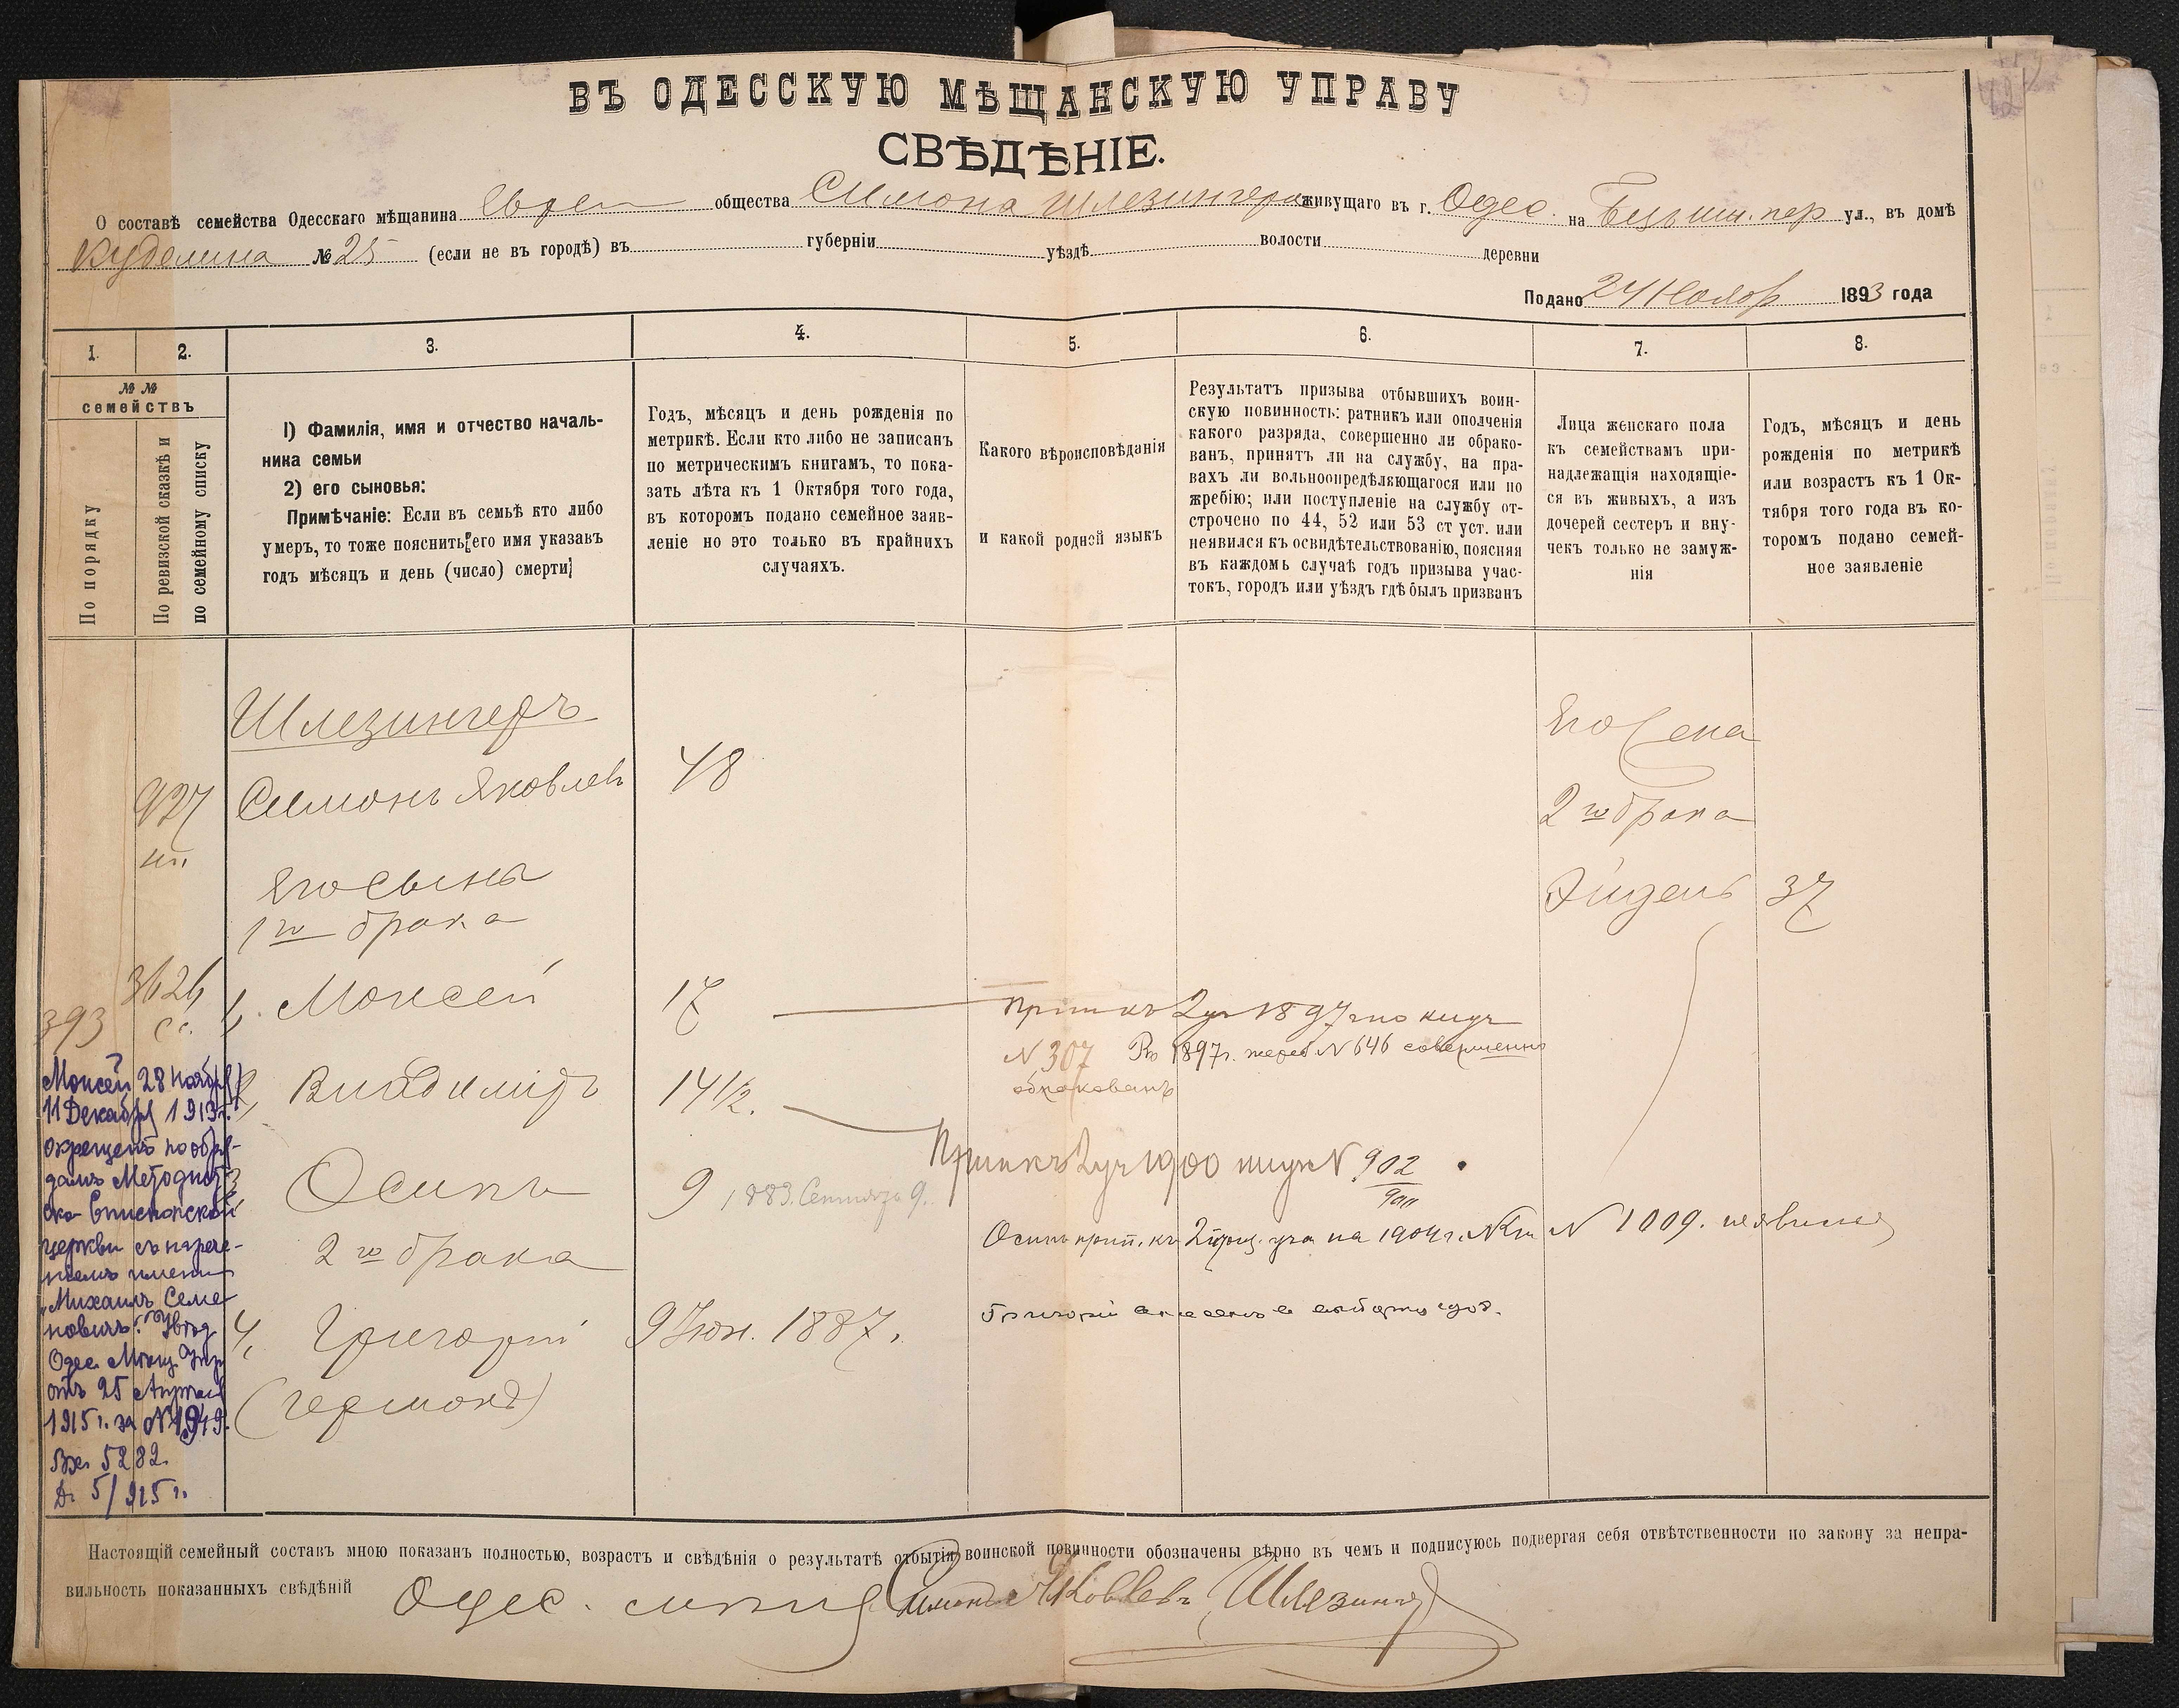 ВЪ ОДЕССКУЮ МѢЩАНСКУЮ УПРАВУ
СВѢДѢНІЕ.
О составѣ семейства Одесскаго мѣщанина Евреи общества Симона Шлезингера живущаго въ г. Одес. на пер ул., въ домѣ
№ 25 (если не въ городѣ) въ губерніи уѣздѣ волости деревни
Подано 24 Нояб 1893 года
1. 2. 3. 4. 5. 6. 7. 8.
№ №
семействъ
По порядку
По ревизской сказкѣ и
по семейному списку
I) Фамилія, имя и отчество началь-
ника семьи
2) его сыновья:
Примѣчаніе: Если въ семьѣ кто либо
умеръ, то тоже пояснить его имя указавъ
годъ мѣсяцъ и день (число) смерти
Годъ, мѣсяцъ и день рожденія по
метрикѣ. Если кто либо не записанъ
по метрическимъ книгамъ, то пока-
зать лѣта къ 1 Октября того года,
въ которомъ подано семейное заяв-
леніе но это только въ крайнихъ
случаяхъ.
Какого вѣроисповѣданія
и какой родной языкъ
Результатъ призыва отбывшихъ воин-
скую повинность: ратникъ или ополченія
какого разряда, совершенно ли обрако-
ванъ, принятъ ли на службу, на пра-
вахъ ли вольноопредѣляющагося или по
жребію; или поступленіе на службу от-
строчено по 44, 52 или 53 ст уст. или
неявился къ освидѣтельствованію, поясняя
въ каждомъ случаѣ годъ призыва учас-
токъ, городъ или уѣздъ гдѣ былъ призванъ
Лица женскаго пола
къ семействамъ при-
надлежащія находящіе-
ся въ живыхъ, а изъ
дочерей сестеръ и вну-
чекъ только не замуж-
нія
Годъ, мѣсяцъ и день
рожденія по метрикѣ
или возрастъ къ 1 Ок-
тября того года въ ко-
торомъ подано семей-
ное заявленіе
Шлезингеръ
Его жена
927 Симонъ Яковлевъ 48
2 го брака
Его Сыны
37
1 го брака
3626
393 1, Моисей 17 Прип къ 2 уч 1897 г по
N 307 1897 г. жереб N 646 совершенно
обракованъ
2, Владиміръ 14 1/2.
Прип къ 2 уч 1900 N 902
3, Осипъ 9 1883. Сентября 9.
Осипъ прип. къ 2 приз. уч на 1904 г. N 1009. неявился
2 го брака
4, Григорій 9 Іюн. 1887.
(Германъ)
Моисей 28 Ноября/
11 Декабря 1913 г.
окрещенъ по обря-
дамъ Методист
ско Епископской
церкви съ нарече-
ніемъ имени
"Михаилъ Семе-
новичъ". Увѣд
Одес. Мѣщ. Упр
отъ 25 Апрѣля
1915 г. за
Вх. 5282.
Д. 5/915 г.
Настоящій семейный составъ мною показанъ полностью, возрастъ и свѣдѣнія о результатѣ отбытія воинской повинности обозначены вѣрно въ чемъ и подписуюсь подвергая себя отвѣтственности по закону за непра-
вильность показанныхъ свѣдѣній Одес. Симонъ Яковлевъ Шлезингеръ